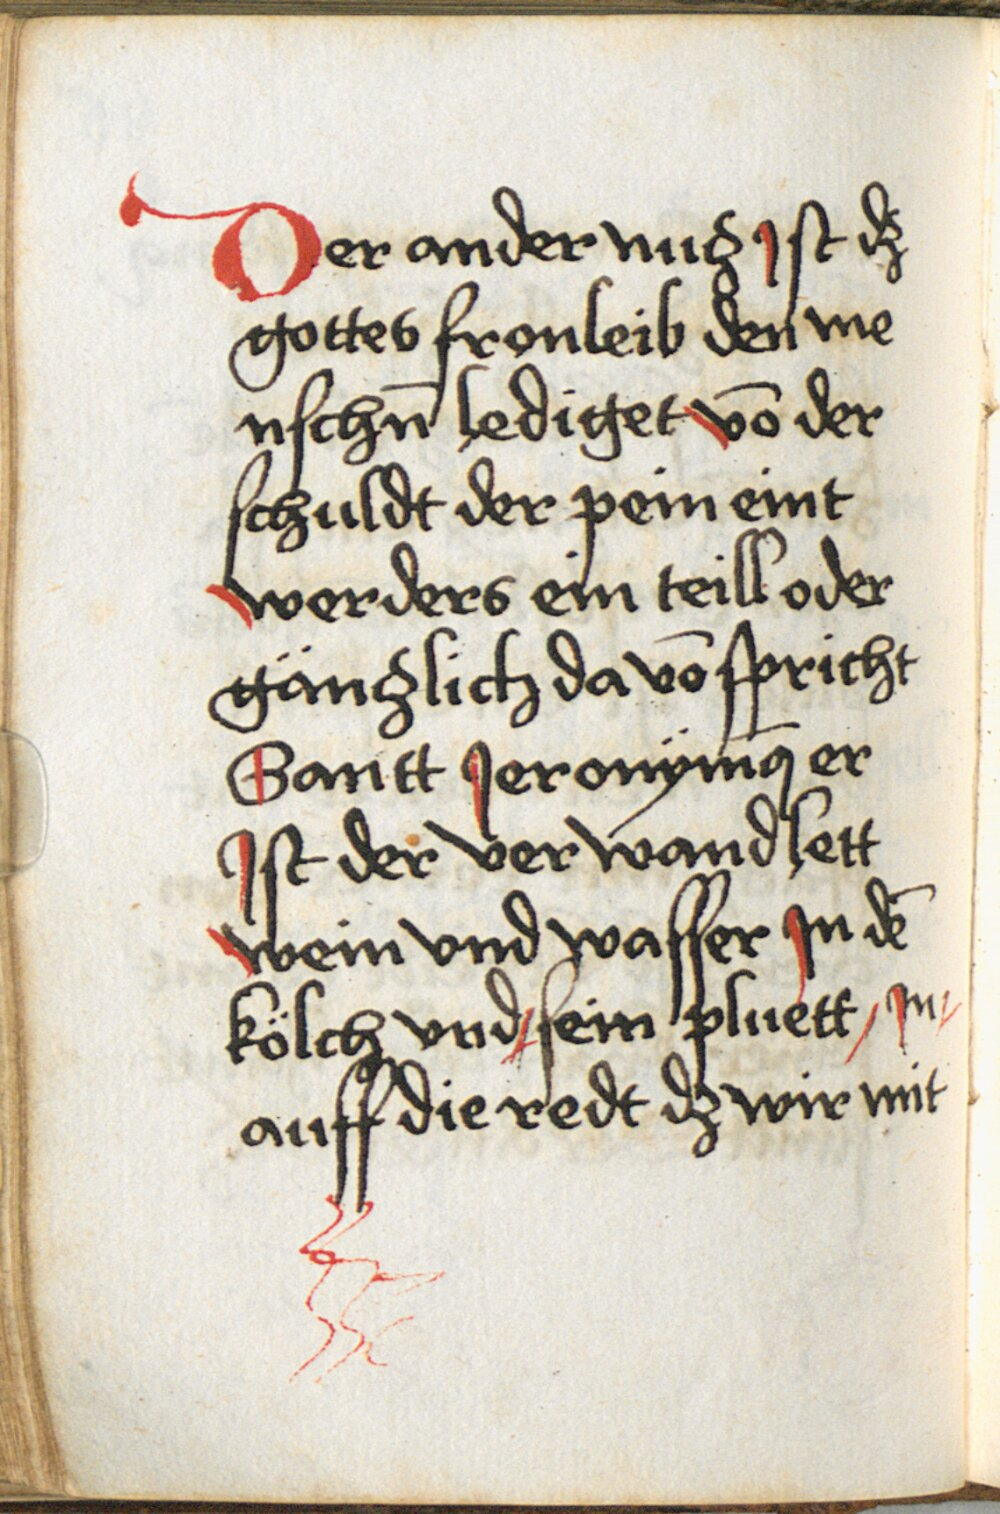 Der ander nucz Jst dz
gottes fronleib den me
nschn̄ lediget vō der
schuldt der pein eint
werders ein teill oder
gänczlich da vō spricht
Santt Jeronÿmꝰ er
Jst der ver wandlett
wein vnd wasser Jn dē
kölch vnd sein pluett / Jn /
auff die redt dz wir mit